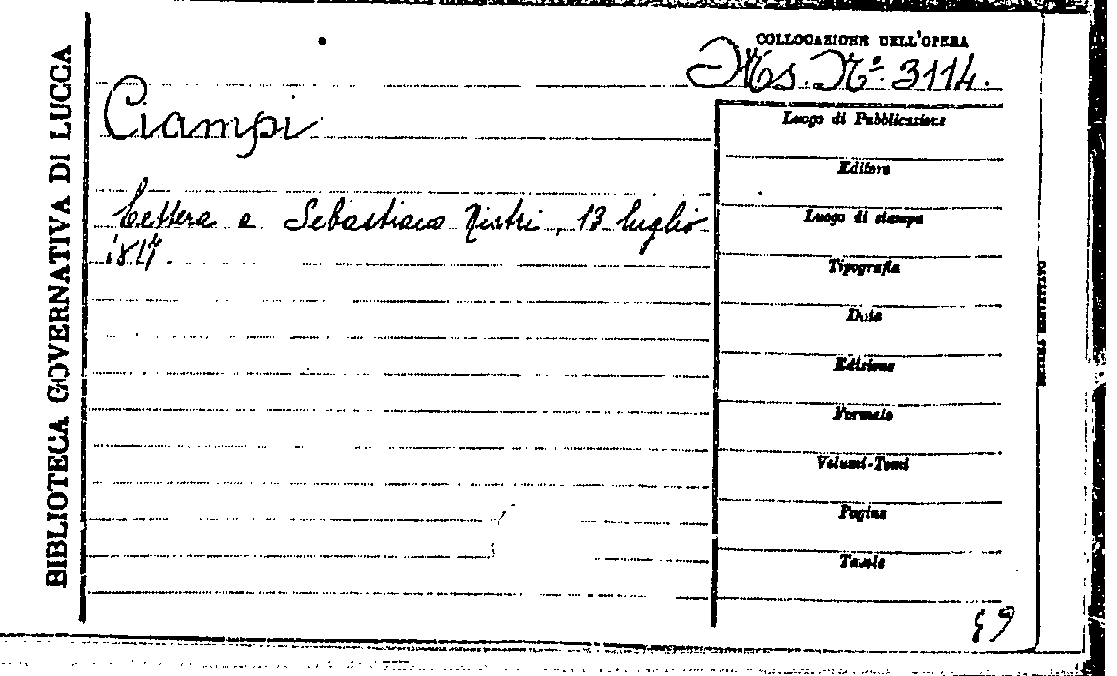 BIBLIOTECA GOVERNATIVA DI LUCCA
COLLOCAZIONE DELL'OPERA
Ms. N.º 3114.
Ciampi
Lettera a Sebastiano Nistri, 13 luglio
Luogo di Pubblicazione
Editore
Luogo di stampa
Tipografia
Data
Edizione
Formato
Volumi-Tomi
Pagine
Tavole